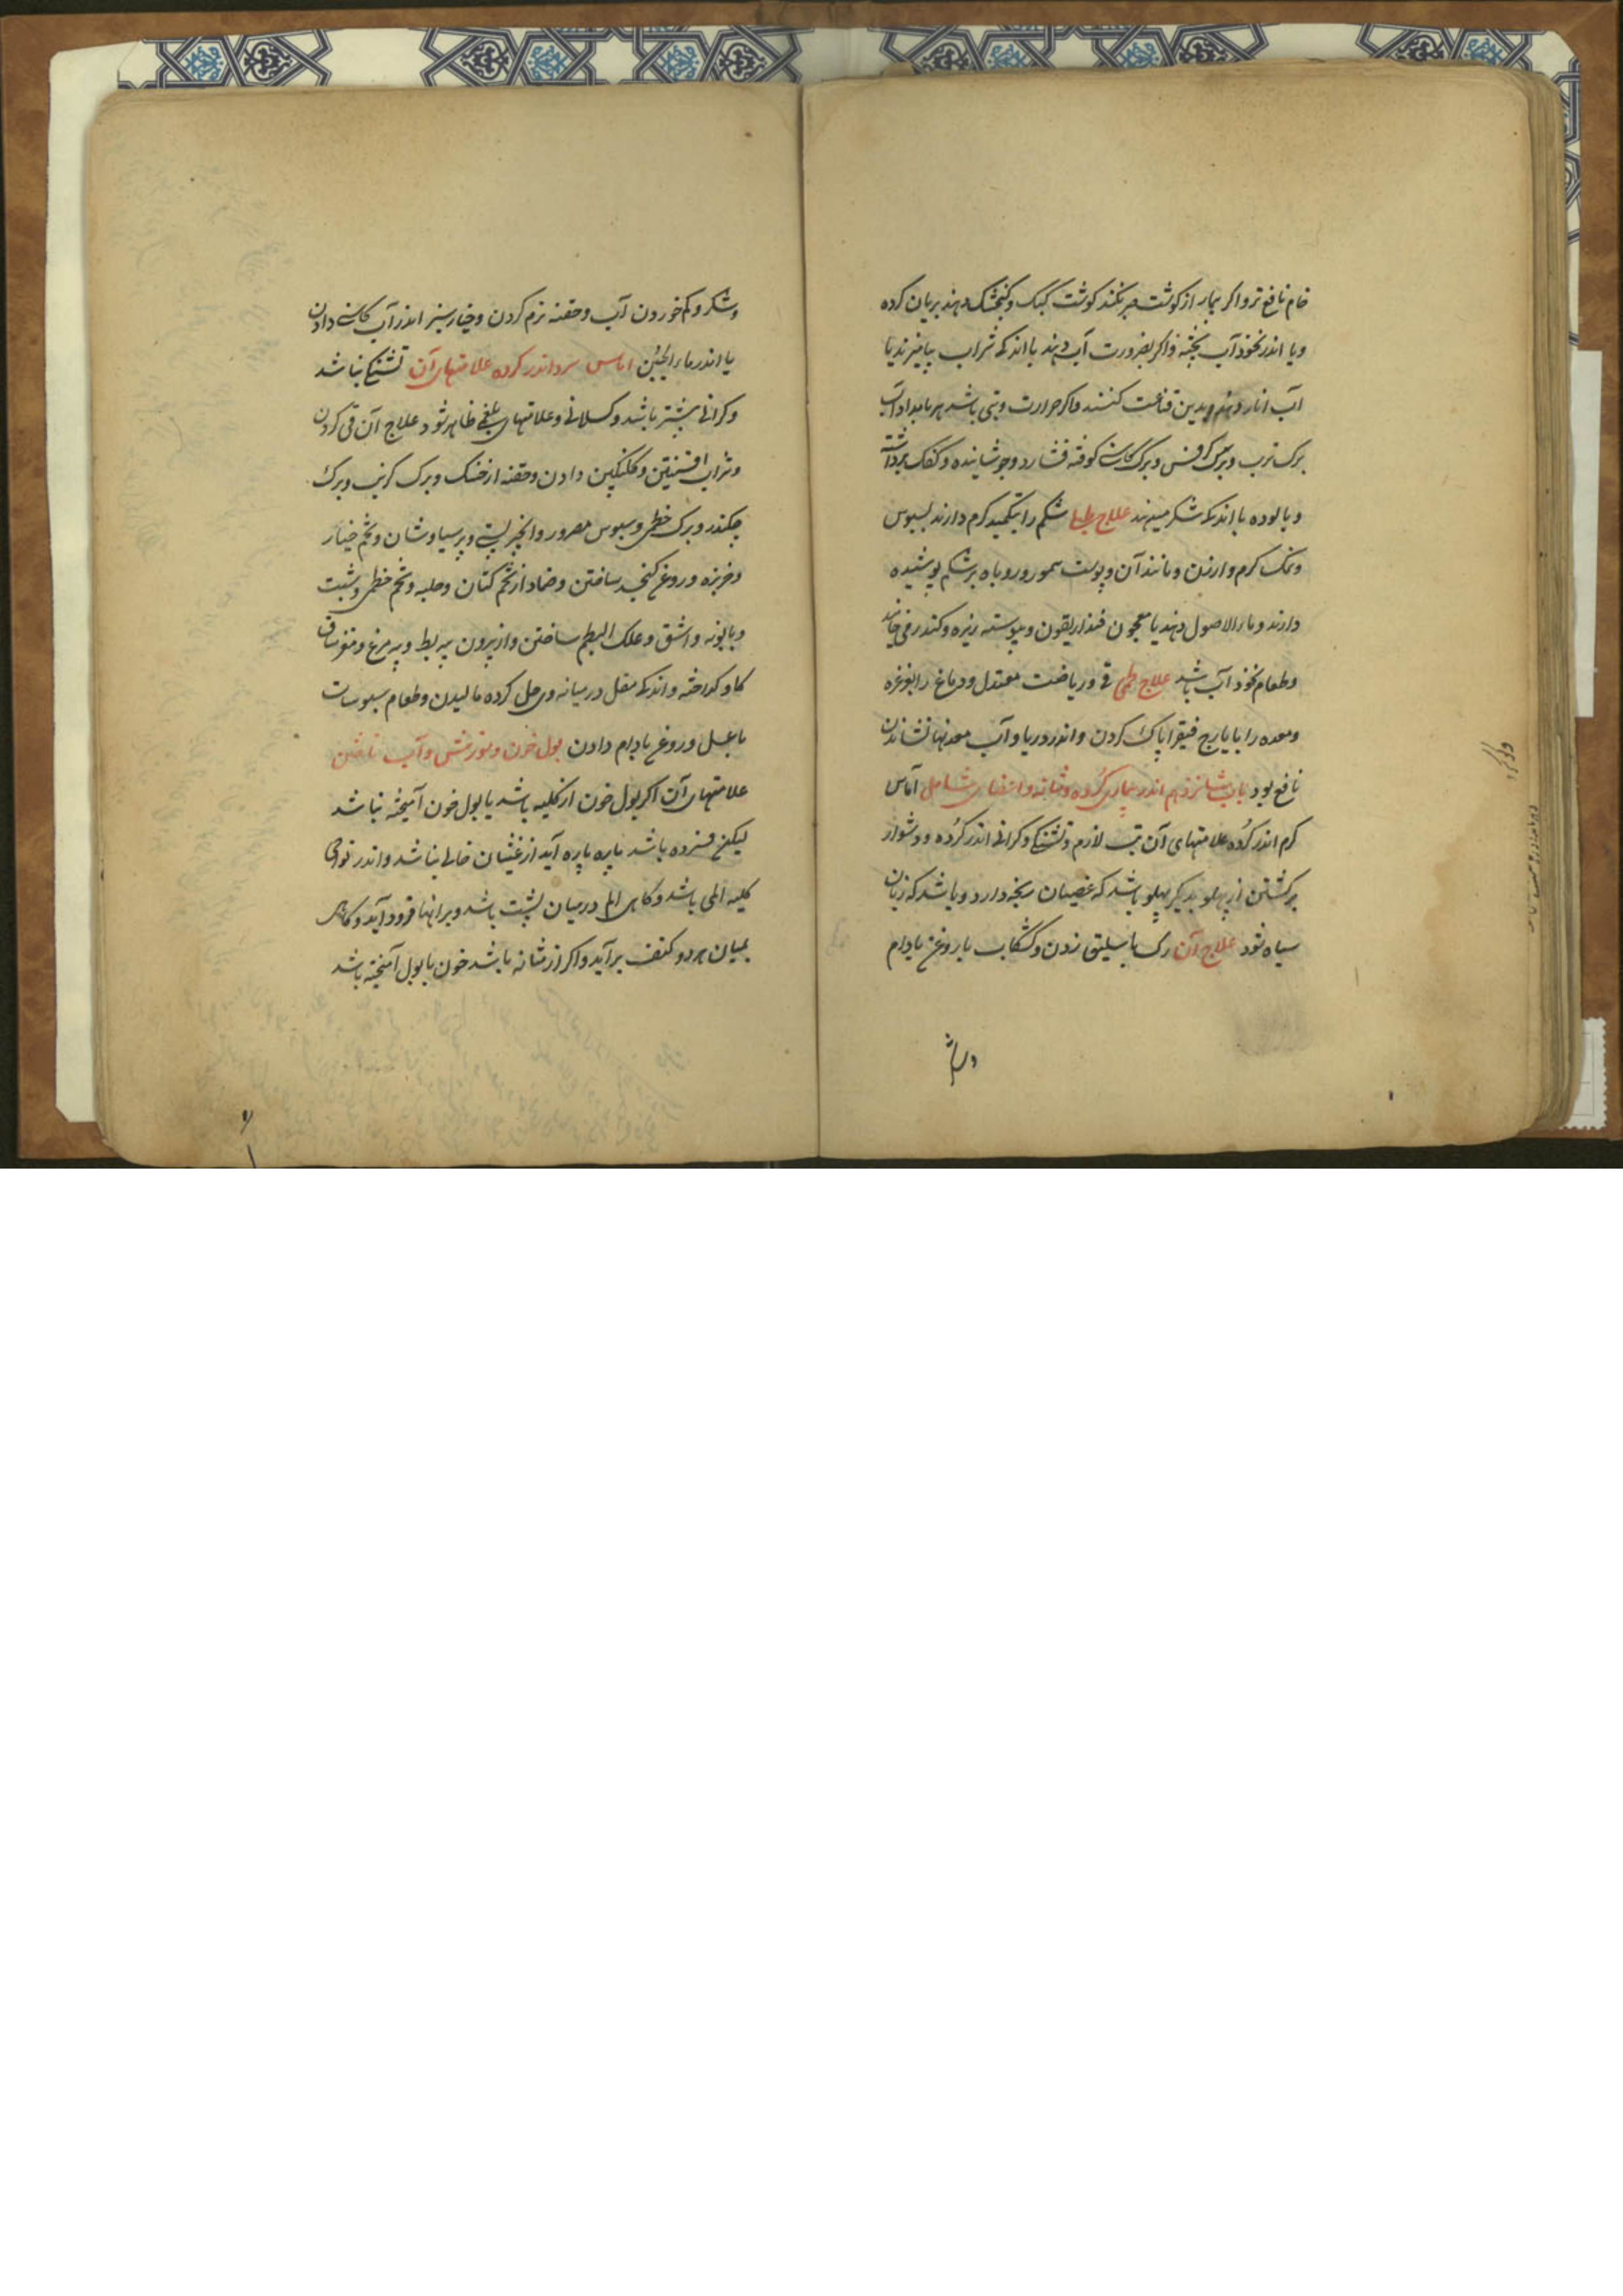 خام نافع تر و اکر بیمار از کوشت صبر نکند کوشت کبک و کنجشک دهند بریان کرده
و یا اندر نخود آب پخته و اکر بضرورت آب دهند با اندکه شراب بیامیزند یا
آب انار دهند و بدین قناعت کنند و اکر حرارت و تبی باشد هر بامداد آب
برک ترب و برک کرفس و برک کاسنی کوفته فشارد و جوشانیده و کفک برداشته
و پالوده با اندکه شکر میدهند علاج طبلی شکم را بتکمید کرم دارند بسبوس
و نمک کرم و ارزن و مانند آن و پوست سمور و روباه بر شکم پوشیده
دارند و ماء الاصول دهند یا معجون فنداریقون و پیوسته زیره و کندر می خاید
و طعام نخود آب باشد علاج لحمی قی و ریاضت معتدل و دماغ را بغرغره
و معده را بایارج فیقرا پاک کردن و اندر دریا و آب معدنها نشاندن
نافع بود باب شانزدهم اندر بیماری کُرده و مثانه و اعضای تناسل آماس
کرم اندر کُرده علامتهای آن تب لازم و تشنکی و کرانی اندر کُرده و دشوار
برکشتن از پهلو بدیکر پهلو باشد که غصیان رنجه دارد و باشد که زبان
سیاه شود علاج آن رک باسلیق زدن و کشکاب با روغن بادام
و شکر
و شکر و کم خوردن آب و حقنه نرم کردن و خیارشنبر اندر آب کاسنی دادن
یا اندر ماء الجبن اماس سرد اندر کرده علامتهای آن تشنکی نباشد
و کرانی بیشتر باشد و کسلانی و علامتهای بلغمی ظاهر شود علاج آن قی کردن
و شراب افسنتین و کلنکبین دادن و حقنه از خسک و برک کرنب و برک
چکندر و برک خطمی و سبوس مصرور و انجیر بستی و پرسیاوشان و تخم خیار
و خربزه و روغن کنجد ساختن و ضماد از تخم کتان و حلبه و تخم خطمی و شبت
و بابونه و اشق و علک البطم ساختن و از بیرون پیه بط و پیه مرغ و مغز ساق
کاو کداخته و اندکه مقل در میانه وی حل کرده مالیدن و طعام سبوسات
با عسل و روغن بادام دادن بول خون و سوزش و آب تاختن
علامتهای آن اکر بول خون از کلیه باشد با بول خون آمیخته نباشد
لیکن فسرده باشد پاره پاره آید از غثیان خالی نباشد و اندر نواحی
کلیه المی باشد و کاهی الم در میان پشت باشد و برانها فرود آید و کاهی
بمیان هر دو کتف برآید و اکر از مثانه باشد خون با بول آمیخته باشد